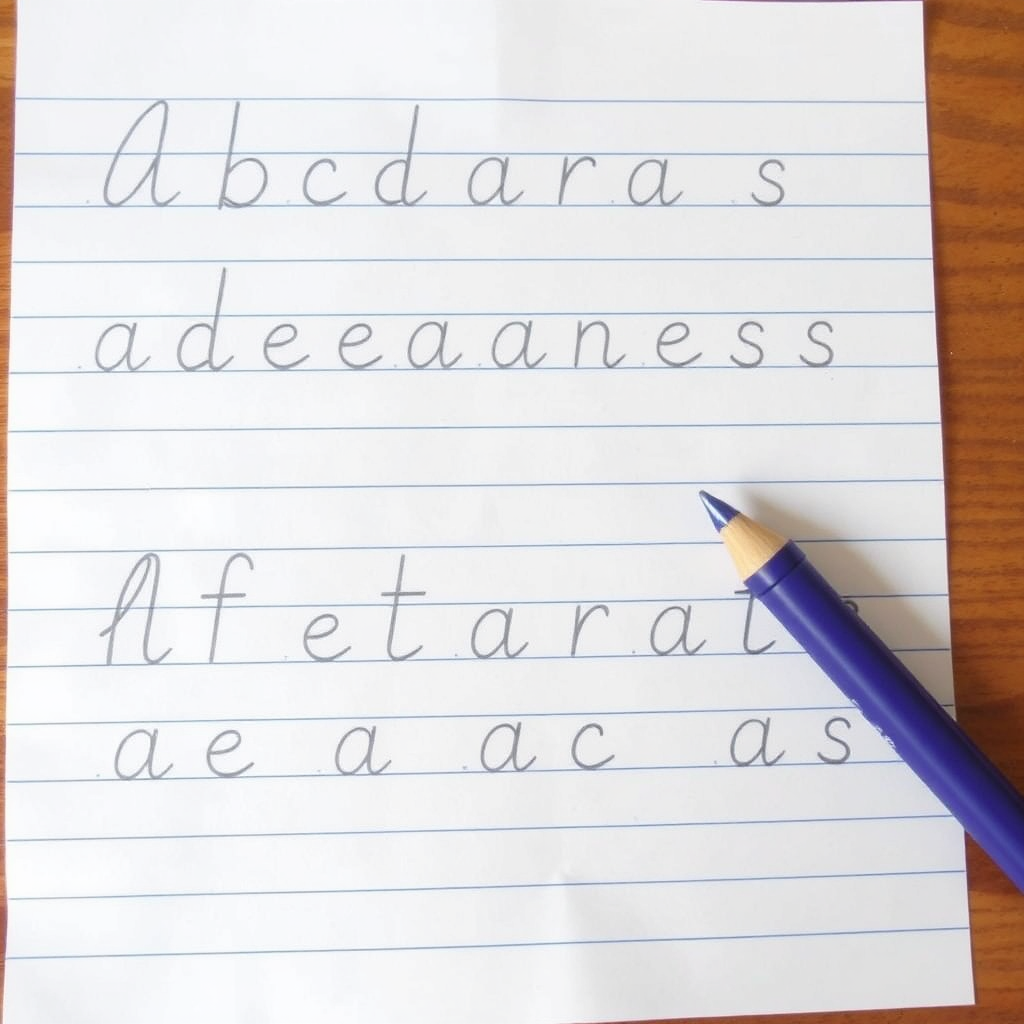 Abcdara s
adeeaaness
Af etarat
ae a ac as